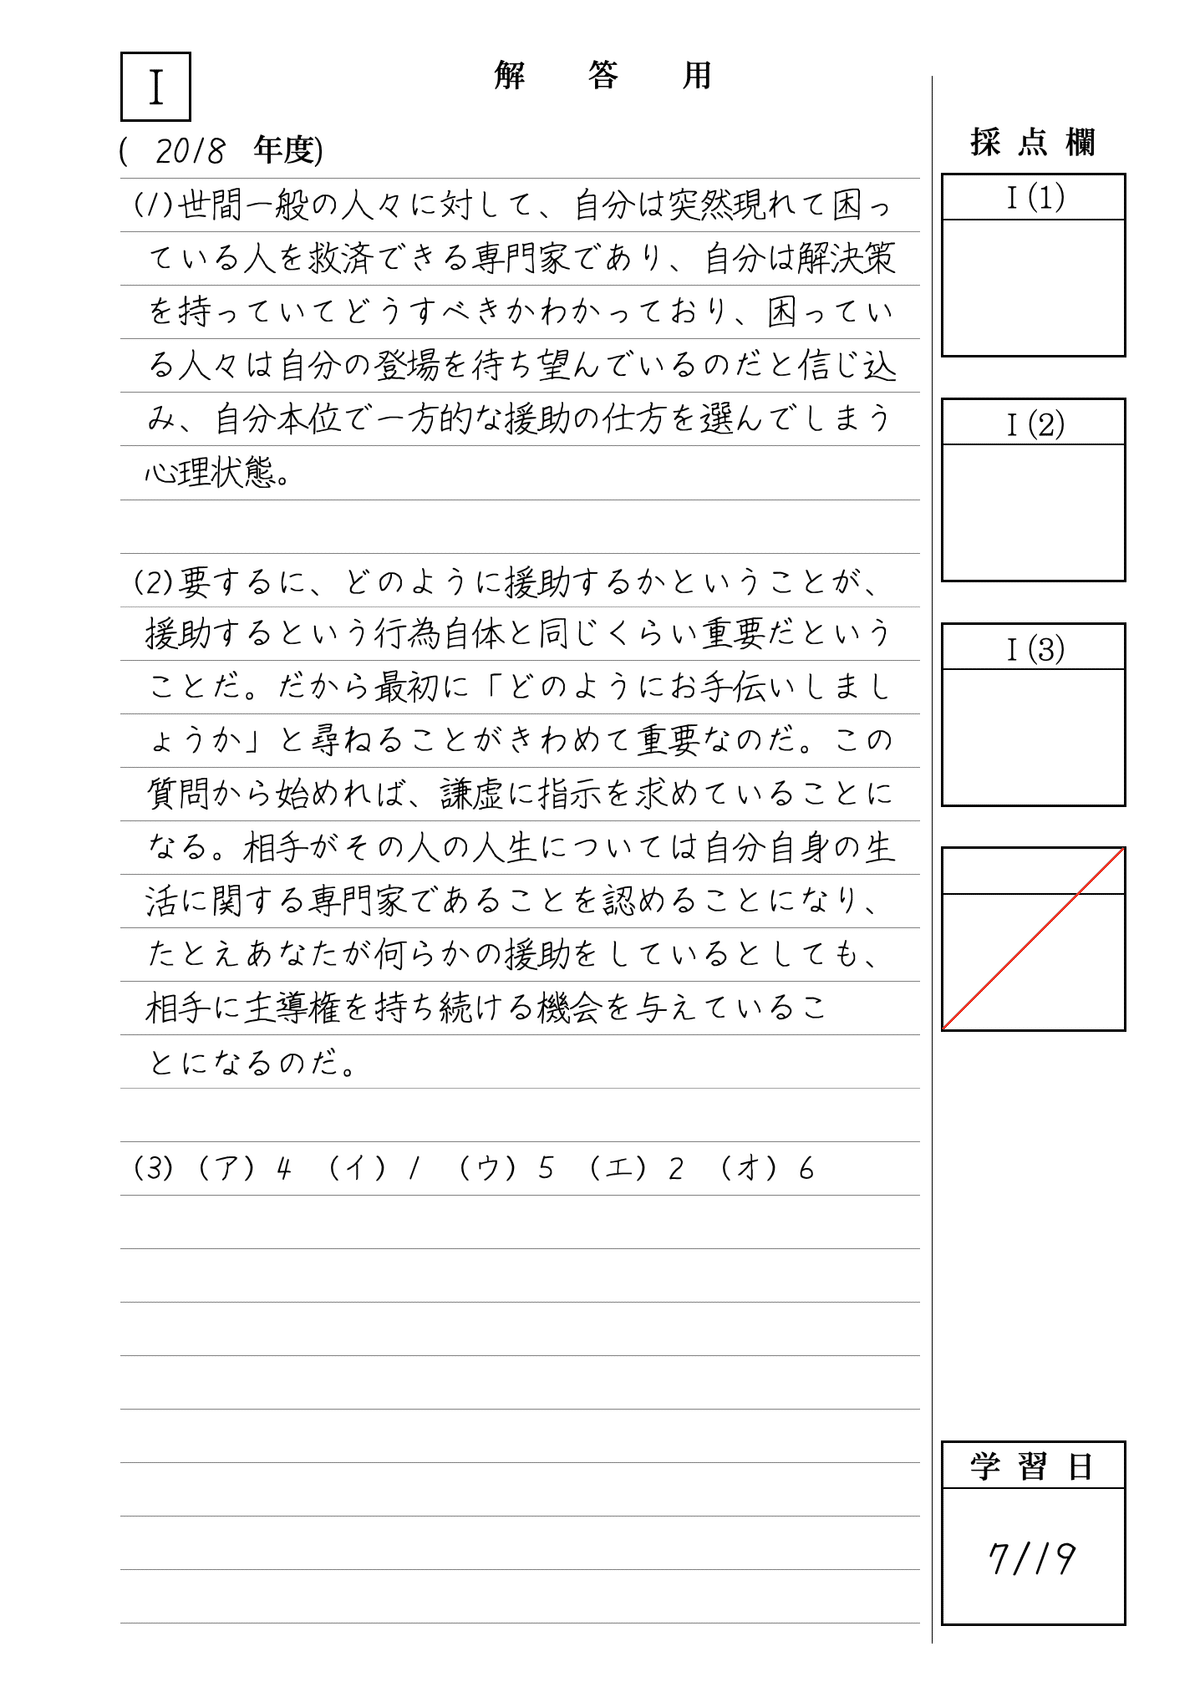 I
解 答 用
( 2018 年度)
(1)世間一般の人々に対して、自分は突然現れて困っ
ている人を救済できる専門家であり、自分は解決策
を持っていてどうすべきかわかっており、困ってい
る人々は自分の登場を待ち望んでいるのだと信じ込
み、自分本位で一方的な援助の仕方を選んでしまう
心理状態。
(2)要するに、どのように援助するかということが、
援助するという行為自体と同じくらい重要だという
ことだ。だから最初に「どのようにお手伝いしまし
ょうか」と尋ねることがきわめて重要なのだ。この
質問から始めれば、謙虚に指示を求めていることに
なる。相手がその人の人生については自分自身の生
活に関する専門家であることを認めることになり、
たとえあなたが何らかの援助をしているとしても、
相手に主導権を持ち続ける機会を与えているこ
とになるのだ。
(3) (ア) 4 (イ) 1 (ウ) 5 (エ) 2 (オ) 6
採 点 欄
I (1)
I (2)
I (3)
学 習 日
7/19